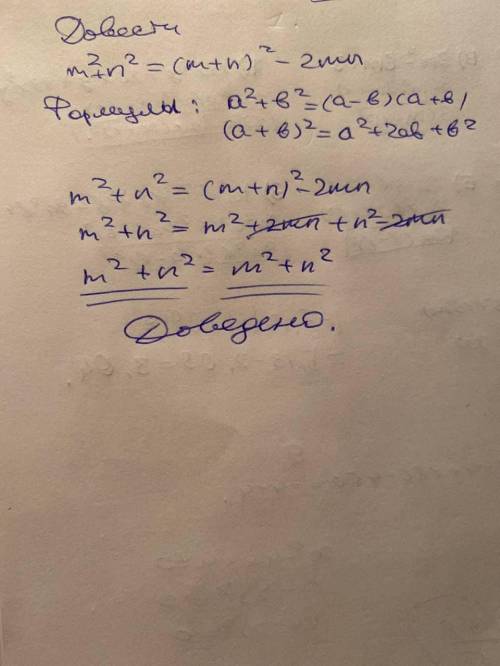 Довести
m²+n² = (m+n)² - 2mn
Формулы: a²+в²=(a-в)(a+в)
(a+в)²=a²+2ав+в²
m²+n² = (m+n)²-2mn
m²+n² = m²+2mn+n²-2mn
m²+n² = m²+n²
Доведено.